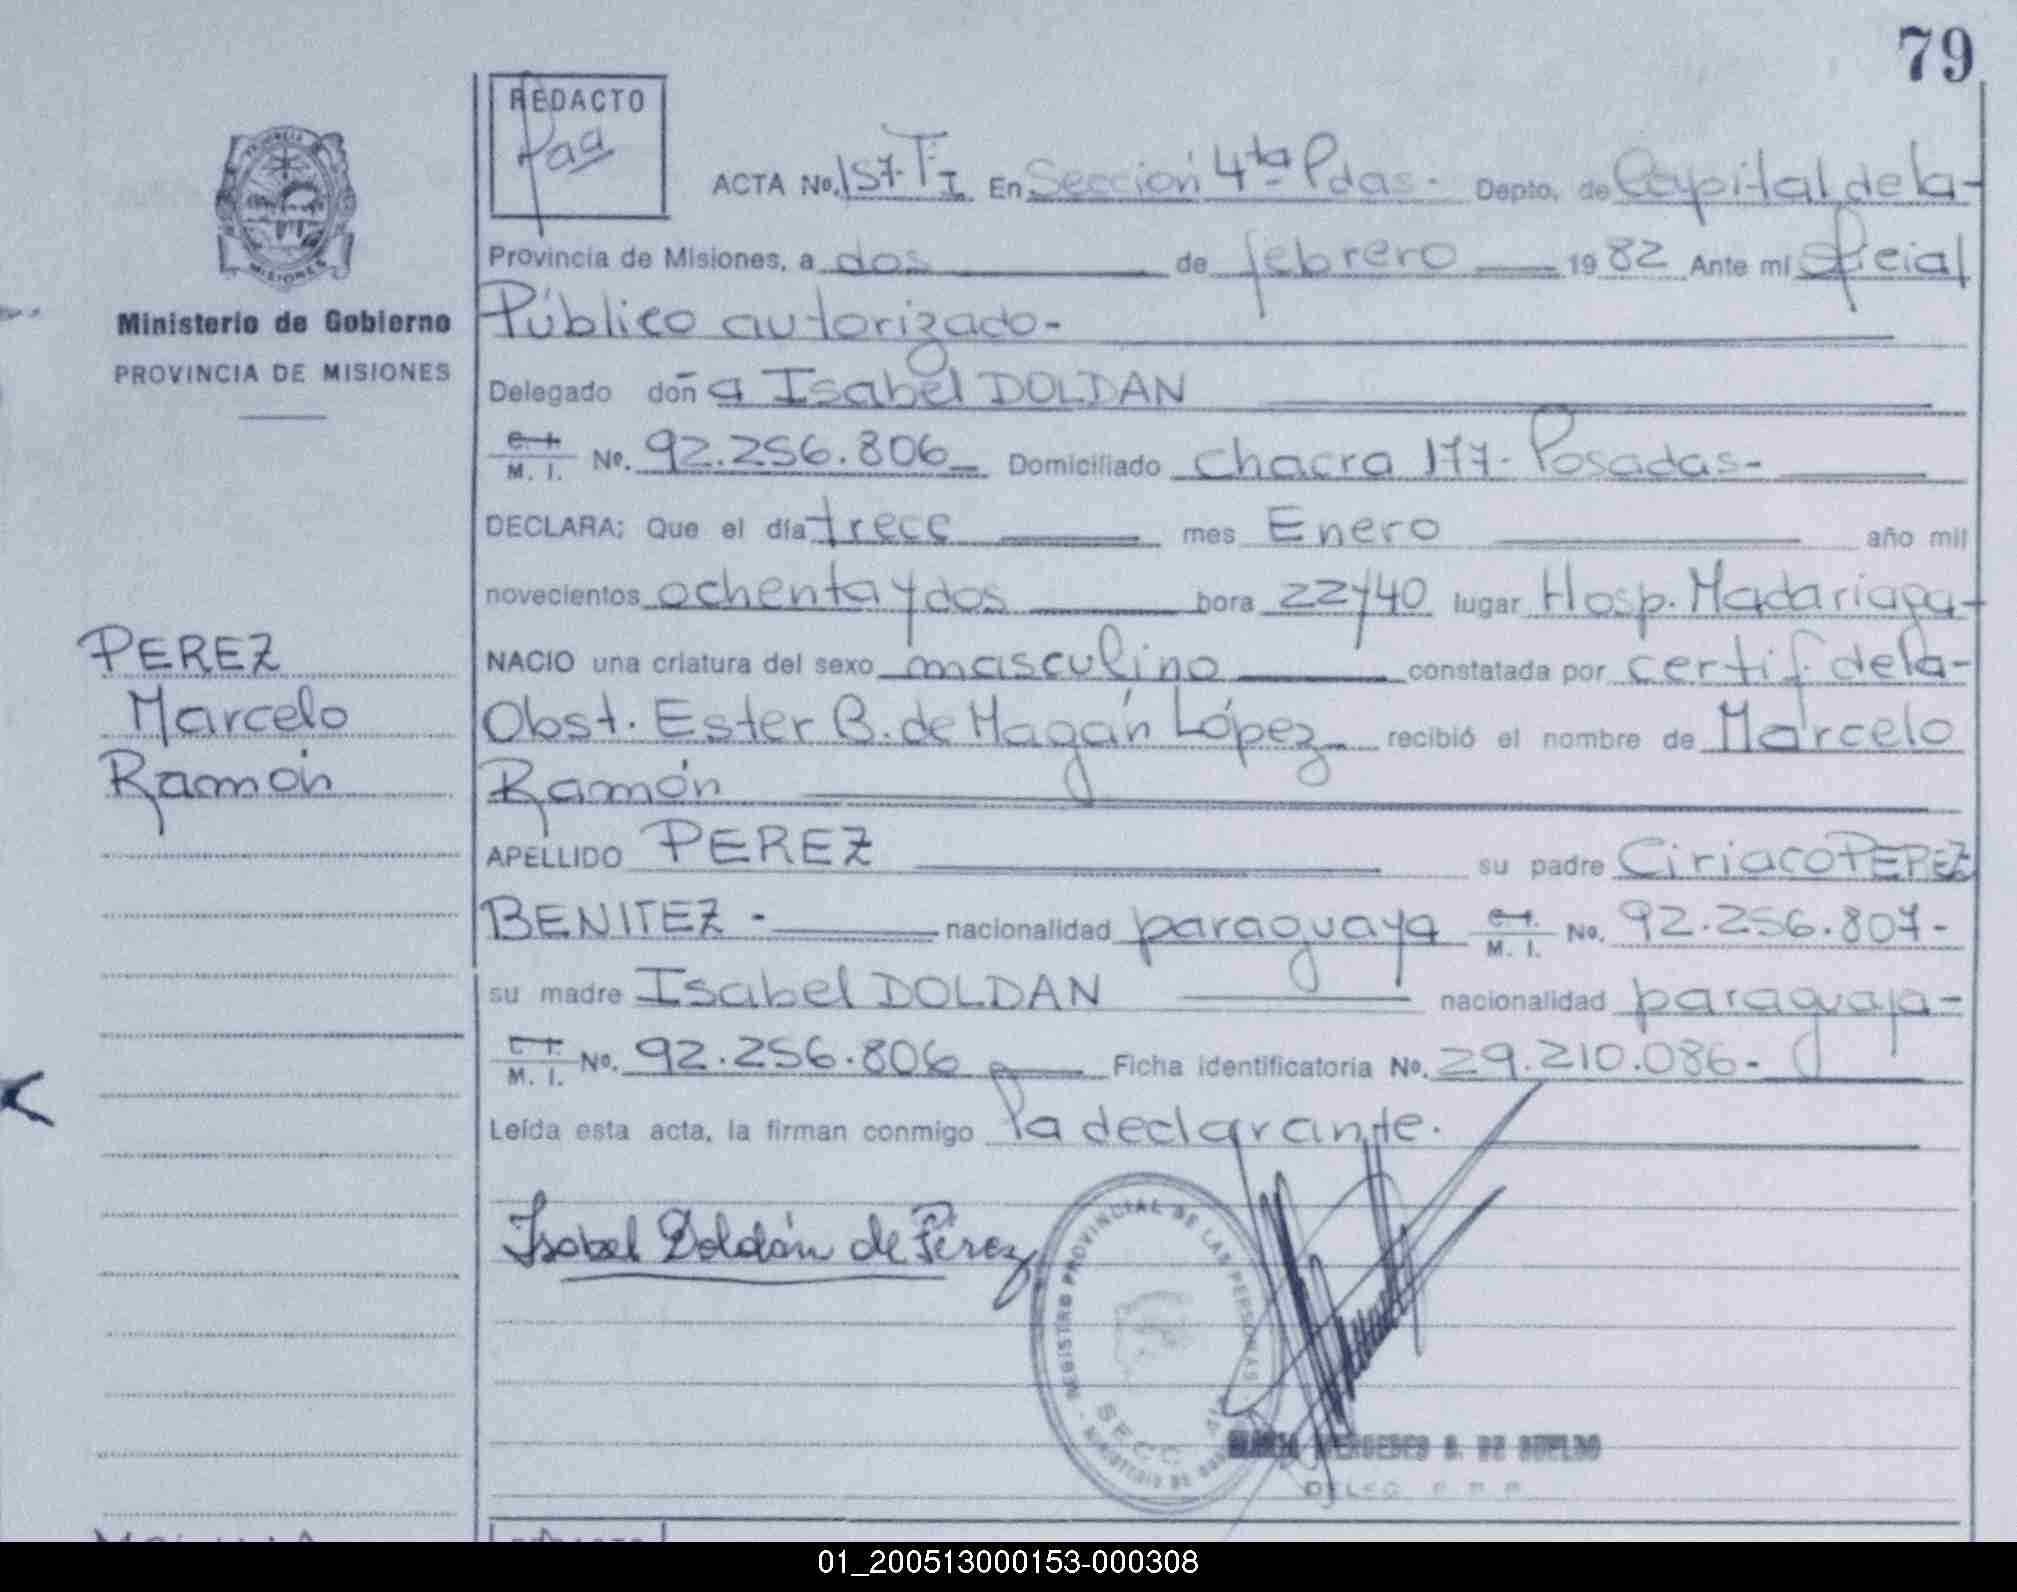 79
REDACTO
ACTA No. 157-T-I En Sección 4ta Pdas- Depto. de Capital de la-
Provincia de Misiones, a dos de febrero 1982 Ante mi oficial
Público autorizado-
Delegado doña Isabel DOLDAN
C. I. M. I. No. 92.256.806 Domiciliado chacra 177- Posadas-
DECLARA; Que el día trece mes Enero año mil
novecientos ochenta y dos hora 22y40 lugar Hosp. Madariaga-
NACIO una criatura del sexo masculino constatada por certif. de la-
Obst. Ester B. de Magán López recibió el nombre de Marcelo
Ramón
APELLIDO PEREZ su padre Ciriaco PEREZ
BENITEZ- nacionalidad paraguaya C. I. M. I. No. 92.256.807-
su madre Isabel DOLDAN nacionalidad paraguaya-
C. I. M. I. No. 92.256.806 Ficha identificatoria No. 29.210.086-
Leída esta acta, la firman conmigo la declarante.
Isabel Doldán de Pérez
REGISTRO PROVINCIAL DE LAS PERSONAS
SECC. 4
MERCEDES
PROVINCIA
MISIONES
Ministerio de Gobierno
PROVINCIA DE MISIONES
PEREZ
Marcelo
Ramón
REDACTO
01_200513000153-000308